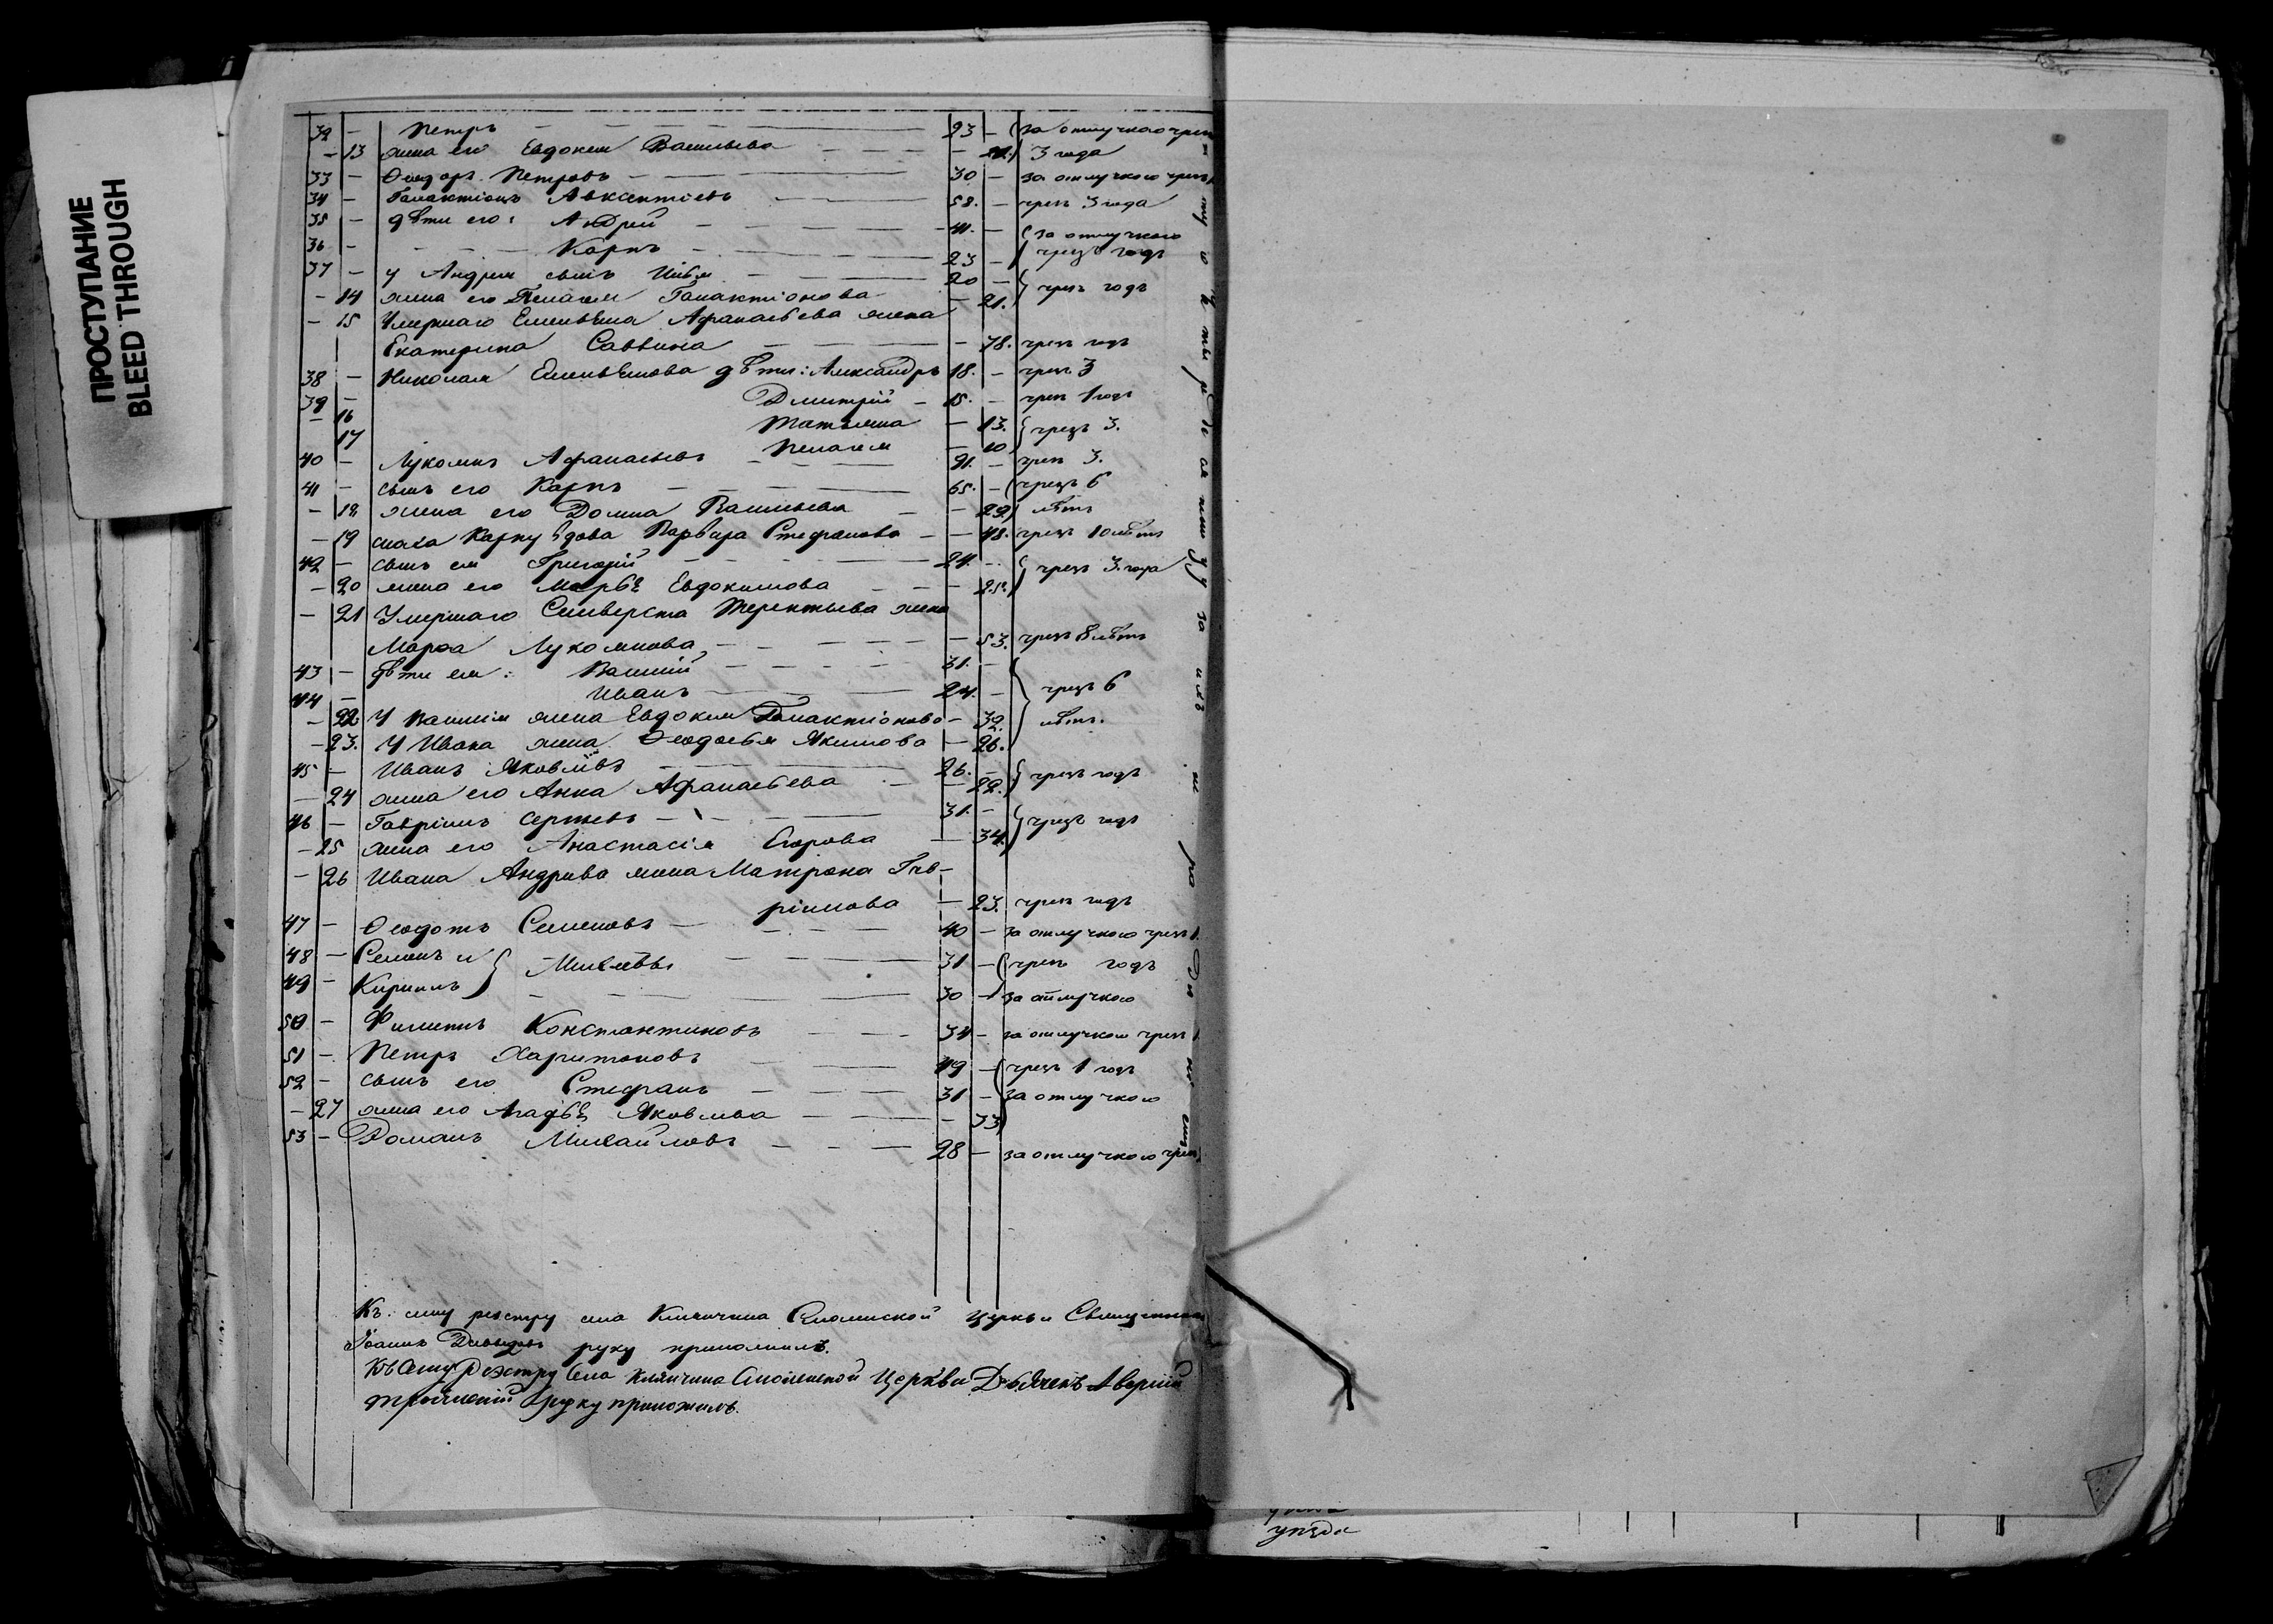 ПРОСТУПАНИЕ
BLEED THROUGH
32 — Петръ — 23 — за отлучкою чрезъ
— 13 жена его Евдокия Васильева — 3 года
33 — Ѳеодоръ Петровъ — 30 — за отлучкою чрезъ
34 — Галактіонъ Авксентіевъ — 58. — чрезъ 3 года
35 — дѣти его: Андрей — 41. — за отлучкою
36 — Карпъ — 23 — чрезъ годъ
37 — у Андрея сынъ Илья — 20 —
— 14 жена его Пелагея Галактіонова — 21. чрезъ годъ
— 15 Умершаго Емельяна Афанасьева жена
Екатерина Саввина — 78. чрезъ годъ
38 — Николая Емельянова дѣти: Александръ 18. — чрезъ 3
39 — Дмитрій — 15. — чрезъ 1 годъ
— 16 Татьяна — 13. чрезъ 3.
17 Пелагея — 10
40 — Лукоянъ Афанасьевъ — 91. — чрезъ 3.
41 — сынъ его Карпъ — 65. — чрезъ 6
— 18 жена его Домна Васильева — 29 лѣтъ
— 19 сноха Карпу вдова Варвара Стефанова — — 48. чрезъ 10 лѣтъ
42 — сынъ ея Григорій — 24. — чрезъ 3 года
— 20 жена его Марья Евдокимова — 25.
— 21 Умершаго Селиверста Терентьева жена
Марѳа Лукоянова — 53. чрезъ 8 лѣтъ
43 — дѣти ея: Василій — 31. —
44 — Иванъ — 24. — чрезъ 6
— 22 У Василія жена Евдокия Галактіонова — 32. лѣтъ.
— 23. У Ивана жена Ѳеодосья Якимова — 26.
45 — Иванъ Яковлевъ — 26. — чрезъ годъ
— 24 жена его Анна Афанасьева — 22.
46 — Гавріилъ Сергѣевъ — 31. — чрезъ годъ
— 25 жена его Анастасія Егорова — 34.
— 26 Ивана Андреева жена Матрона Гав-
ріилова — 23. чрезъ годъ
47 — Ѳеодотъ Семеновъ — 40 — за отлучкою чрезъ 1.
48 — Семенъ и Михѣевы — 31 — чрезъ годъ
49 — Кириллъ — 30 — за отлучкою
50 — Филиппъ Константиновъ — 34 — за отлучкою чрезъ 1
51 — Петръ Харитоновъ — 49 — чрезъ 1 годъ
52 — сынъ его Стефанъ — 31 — за отлучкою
— 27 жена его Агафья Яковлева — 33
53 — Романъ Михайловъ — 28 — за отлучкою чрезъ
Къ сему реэстру села Ключина Смоленской церкви Священникъ
Іоаннъ Давыдовъ руку приложилъ.
Къ сему реэстру села Ключина Смоленской Церкви Дьячекъ Аверкій
Троицкій руку приложилъ.
уѣзда